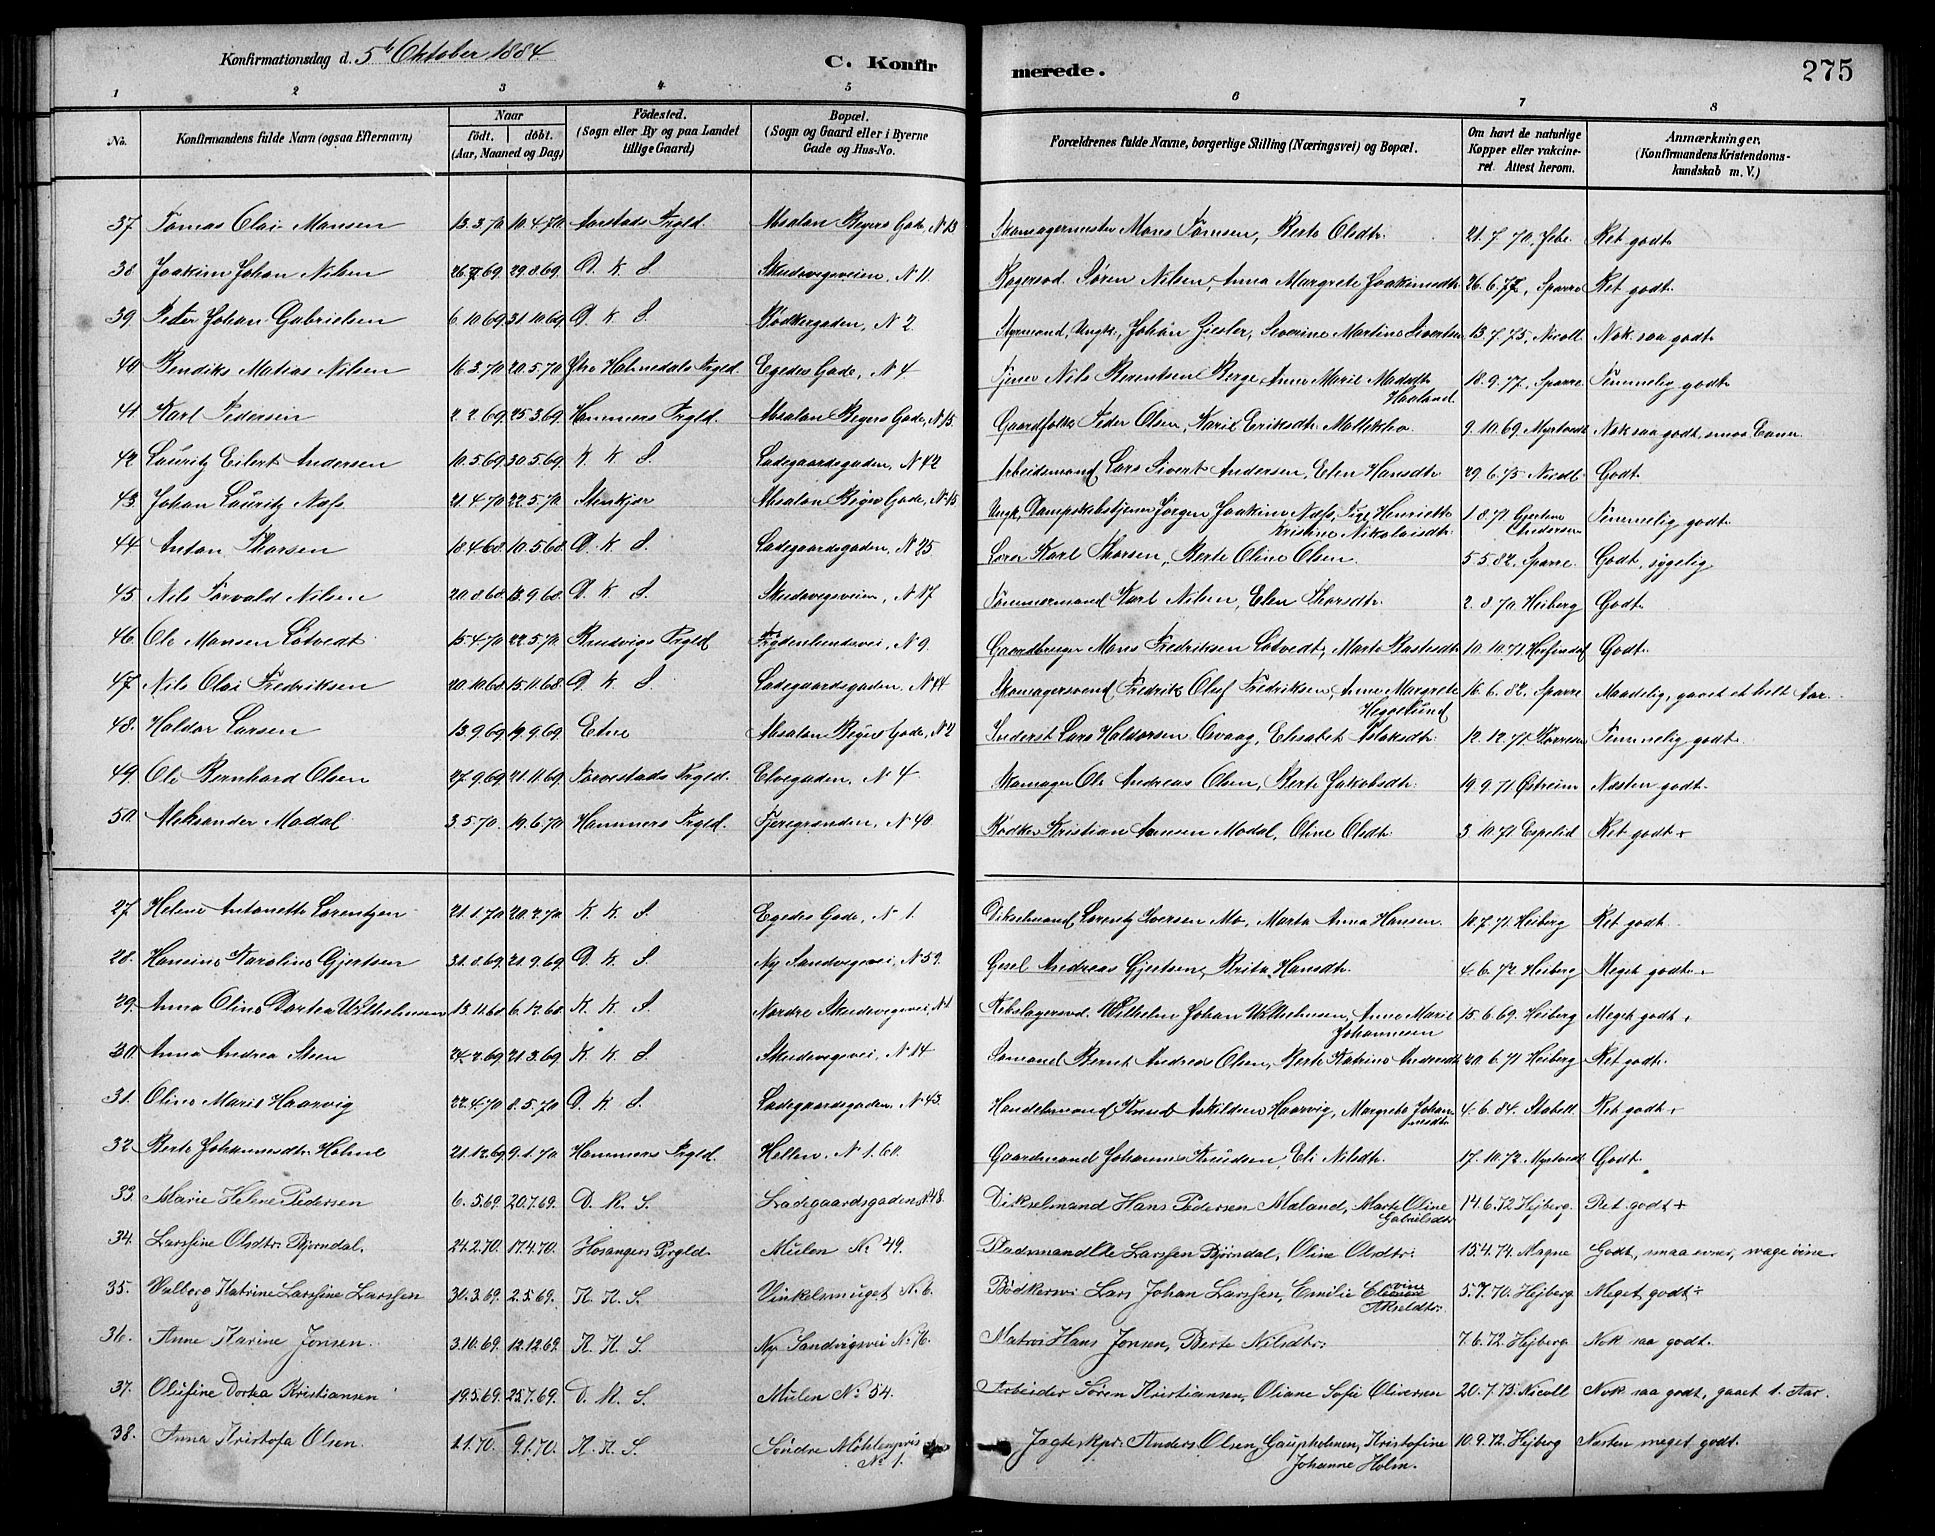 Konfirmationsdag d. 5te Oktober 1884.
C. Konfirmerede.
275
1 2 3 4 5 6 7 8
No.
Konfirmandens fulde Navn (ogsaa Efternavn)
Naar
födt. döbt.
(Aar, Maaned og Dag)
Födested.
(Sogn eller By og paa Landet
tillige Gaard)
Bopæl.
(Sogn og Gaard eller i Byerne
Gade og Hus-No.
Forældrenes fulde Navne, borgerlige Stilling (Næringsvei) og Bopæl.
Om havt de naturlige
Kopper eller vakcine-
ret. Attest herom.
Anmærkninger.
(Konfirmandens Kristendoms-
kundskab m. V.)
37. Tomas Olai Mansen 13.3.70 10.4.70 Aarstads Prgld. Absalon Beyers Gade, N. 13 Skomagermester Mons Tomsen, Berte Olsdtr. 21.7.70. Ret godt
38 Joakim Johan Nilsen 26.7.69 29.8.69. D. K. S. Skudevigsveien, N. 11. Søren Nilsen, Anna Margrete Joakimsdtr. 26.6.77, Sparre Ret godt.
39. Peter Johan Gabrielsen 6.10.69 31.10.69 D. K. S. Bödkergaden, N. 2. Styrmand, Ungk. Johan Ziesler, Severine Martine Sivertsen 13.7.75, Nicoll Nok saa godt.
40 Bendiks Matias Nilsen 16.3.70 20.5.70 Ytre Holmedals Prgld. Egedes Gade, N. 4. Tjener Nils Berentsen Berge Anne Marie Madsdtr. Haaland 18.9.77, Sparre Temmelig godt
41. Karl Pedersen 2.2.69 25.3.69. Hammers Prgld. Absalon Beyers Gade, N. 15. Gaardfolk Peder Olsen, Kari Eriksdtr. 9.10.69 Myrtvedt Nok saa godt, smaa Evner
42 Lauritz Eilert Andersen 10.5.69 30.5.69 K. K. S. Ladegaardsgaden, N. 42 Arbeidsmand Lars Sivert Andersen, Elen Hansdtr. 29.6.75 Nicoll. Godt.
43. Johan Lauritz Næss 21.4.70 22.5.70 Stenkjær Absalon Beyers Gade, N. 15 Ungk. Dampskibstjener Jørgen Joakim Næss, Pige Henriette Kristine Nikolaisdtr. 1.8.71 Andersen Temmelig godt.
44 Anton Thorsen 18.4.68. 10.5.68. D. K. S. Ladegaardsgaden, N. 25 Karl Thorsen, Berte Oline Olsen. 5.5.82. Sparre. Godt, sygelig
45. Nils Torvald Nilsen 20.8.68 13.9.68. D. K. S. Skudevigsveien, N. 17. Tømmermand Karl Nilsen, Elen Thorsdtr. 2.8.70 Heiberg Godt.
46. Ole Monsen Lötvedt 15.4.70 22.5.70. Bruvigs Prgld N. 9. Gaardbruger Mons Fredriksen Lötvedt, Marte 10.10.71 Godt.
47. Nils Olai Fredriksen 20.10.68 15.11.68. D. K. S. Ladegaardsgaden, N. 44 Skomagersvend Fredrik Oluf Fredriksen, Anne Margrete Heggelund 16.6.82, Sparre Maadelig, gaaet et helt Aar.
48. Haldor Larsen 13.9.69 19.9.69. Etne Absalon Beyers Gade, N. 2 Inderst Lars Haldorsen Elisabet Aslaksdtr. 12.12.71 Temmelig godt.
49. Ole Bernhard Olsen 27.9.69 21.11.69. Aarestads Prgld. Elvegaden, N. 4 Skomager Ole Andreas Olsen, Berte Jakobsdtr. 19.9.71 Østreim Næsten godt.
50. Aleksander Modal 3.5.70. 19.6.70 Hammers Prgld. Fjeregranden, N. 40. Bödker Kristian Hansen Modal, Oline Olsdtr. 3.10.71 Espelid Ret godt +
27. Helene Antonette Lorentzen 21.1.70 20.2.70 K. K. S. Egedes Gade, N. 1. Vikselmand Lorentz Iversen Mo, Marta Anna Hansen. 18.7.71. Heiberg Ret godt.
28. Hansine Karoline Gjertsen 31.8.69 21.9.69 D. K. S. Ny Sandvigsvei, N. 59. Gesel Andreas Gjertsen, Brita Hansdtr. 4.6.72 Heiberg Meget godt.
29. Anna Oline Dortea Wilhelmsen 13.11.68 6.12.68 K. K. S. Nordre Skudevigsvei, N. 1 Rebslagersvd. Wilhelm Johan Wilhelmsen, Anne Marie Johannesen 15.6.69. Heiberg Meget godt.
30. Anna Andrea Steen 24.2.69 21.3.69. K. K. S. Skudevigsvei, N. 14 Sømand Bernt Andreas Olsen, Berte Katrine Andersdtr. 20.6.71 Heiberg Ret godt.
31. Oline Marie Haarvig 22.4.70 8.5.70 D. K. S. Ladegaardsgaden, N. 43. Handelsmand Knud Askildsen Haarvig, Margrete Johannesdtr. 4.6.84. Stabell Ret godt +
32 Berte Johannesdtr. Holme 21.12.69 9.1.70 Hammers Prgld. Hellen, N. 1.60. Gaardmand Johannes Knudsen, Eli Nilsdtr. 17.10.72. Myrtvedt Godt.
33. Marie Helene Pedersen 6.5.69. 20.7.69. D. K. S. Ladegaardsgaden, N. 48. Vikselmand Hans Pedersen Mæland, Marte Oline Gabrielsdtr. 14.6.72 Hejberg. Ret godt +
34. Larsine Olsdtr. Bjørndal. 24.2.70. 17.4.70. Hosangers Prgld. Mulen No. 49. Pladsmand Ole Larssen Bjørndal, Oline Olsdtr. 15.4.74 Magne Godt, smaa evner, svage øine.
35. Valborg Katrine Larssine Larssen 31.3.69. 2.5.69. K. K. S. Vinkelsmuget N. 6. Bödkersv. Lars Johan Larssen, Emilie Akseldtr. 5.7.70. Hejberg. Meget godt +
36. Anne Karine Jonsen. 3.10.69. 12.12.69. K. K. S. Ny Sandvigsvei No. 76. Matros Hans Jonsen, Berte Nilsdtr. 7.6.72. Hejberg Nok saa godt.
37. Olufine Dortea Kristiansen 19.5.69. 25.7.69. D. K. S. Mulen No. 54. Arbeider Sören Kristiansen, Oliane Sofie Oliversen 20.7.75. Nicoll Nok saa godt, gaaet 1. Aar.
38. Anna Kristofa Olsen. 1.1.70. 9.1.70. K. K. S. Søndre Møhlenpris No. 1. Jagteskpr. Anders Olsen, Gaupholmen, Kristofine Johanne Holm. 10.9.72. Hejberg Næsten meget godt.